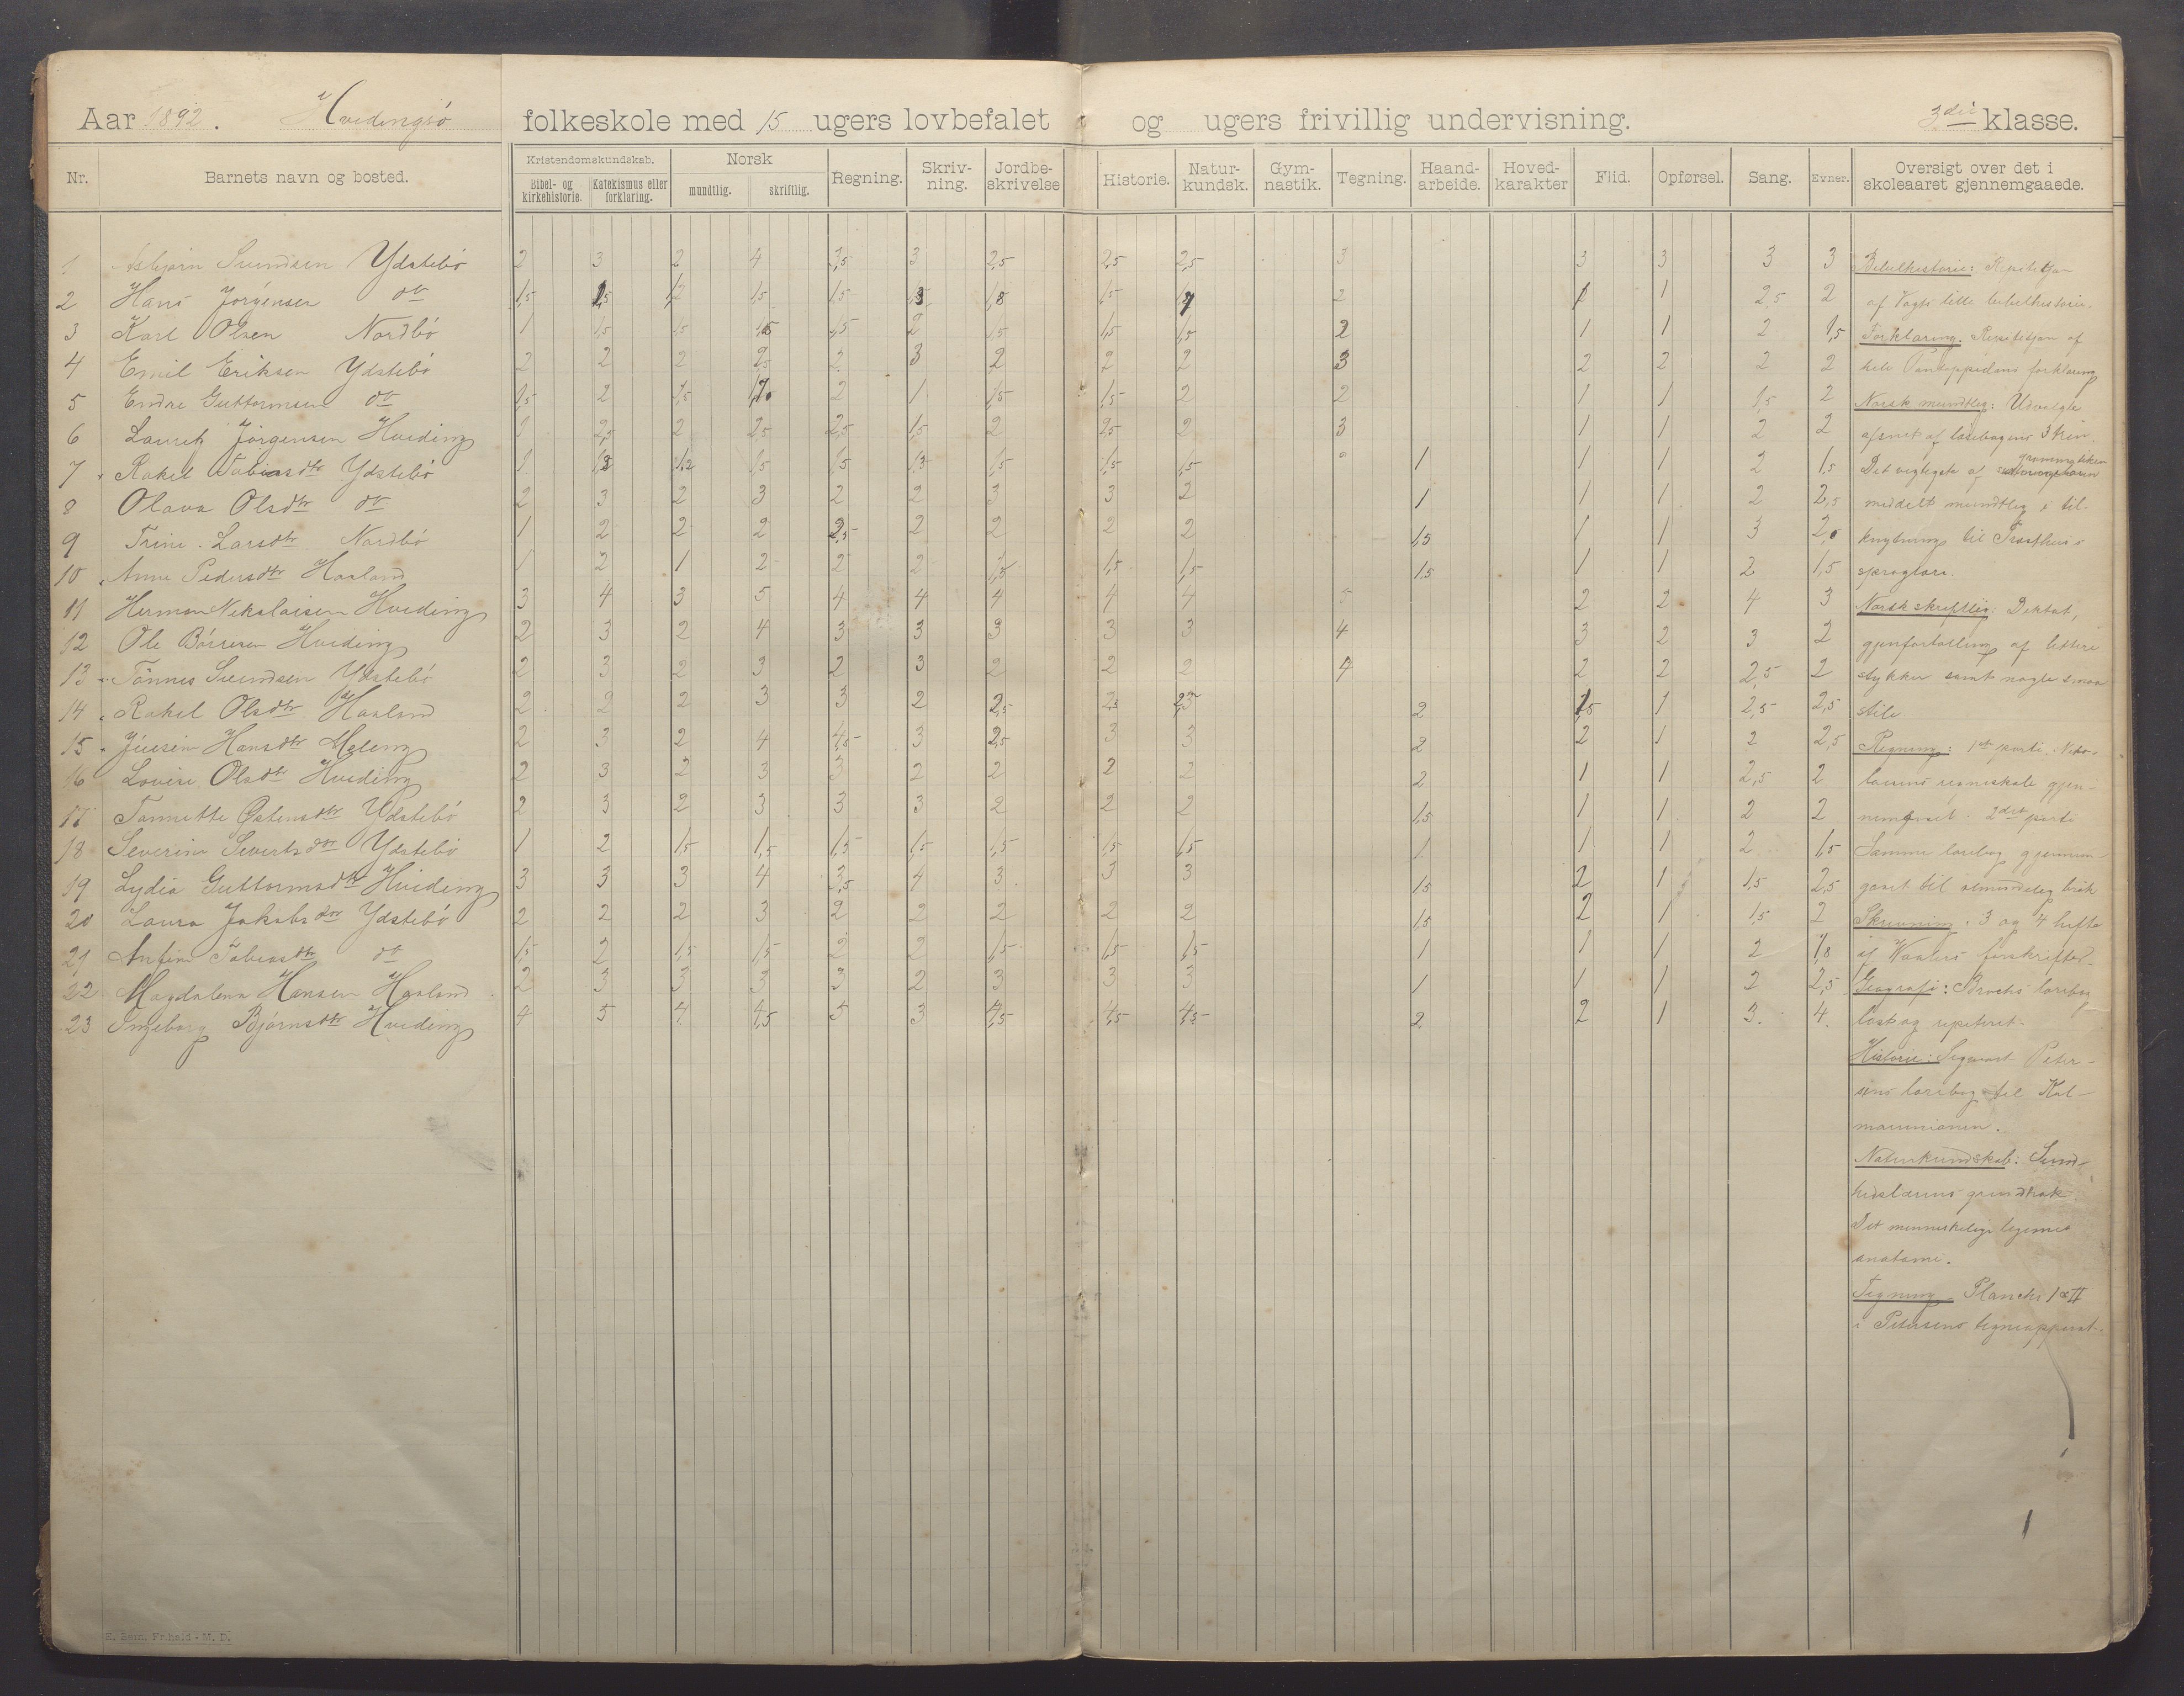 Aar 1892. Hvedingsø folkeskole med 15 ugers lovbefalet og ugers frivillig undervisning. 3die klasse.
Nr. Barnets navn og bosted. Kristendomskundskab. Bibel- og kirkehistorie. Katekismus eller forklaring. Norsk mundtlig. skriftlig. Regning. Skriv-ning. Jordbe-skrivelse Historie. Natur-kundsk. Gym-nastik. Tegning. Haand-arbeide. Hoved-karakter Flid. Opførsel. Sang. Evner. Oversigt over det i skoleaaret gjennemgaaede.
1 Asbjørn Svendsen Ydstebø 2 3 2 4 3,5 3 2,5 2,5 2,5 3 3 3 3 3
2 Hans Jørgensen do 1,5 1,5 2 1,5 1,5 1,8 1,5 2 1 1 2,5 2
3 Karl Olsen Nordbø 1 1,5 1,5 1,5 1,5 2 1,5 1,5 1,5 2 1 1 2 1,5
4 Emil Eriksen Ydstebø 2 2 2 2,5 2 3 2 2 2 3 2 2 2 2
5 Endre Guttormsen do 1,5 2 1,5 2 1 1,5 1,5 2 2 1 1 1,5 2
6 Lauritz Jørgensen Hveding 1 2,5 2 2,5 2,5 1,5 2 2,5 2 3 1 1 2 2
7 Rakel Tobiasdtr Ydstebø 1 1,5 1,5 1,5 1,5 1,5 1 1 1 2 1,5
8 Olava Olsdtr do 2 3 2 3 2 2 3 3 2 1 1 1 2 2,5
9 Trine Larsdtr Nordbø 1 2 2 2 2,5 2 2 2 2 1,5 1 1 3 2,0
10 Anne Pedersdtr Haaland 1 2 1 2 2 2 1,5 1,5 1,5 1,5 1 1 2 1,5
11 Herman Nikolaisen Hveding 3 4 3 5 4 4 4 4 4 5 2 2 4 3
12 Ole Børresen Hveding 2 3 2 4 3 3 3 3 3 4 3 2 3 2
13 Tønnes Svendsen Ydstebø 2 3 2 3 2 3 2 2 2 4 2 2 2,5 2
14 Rakel Olsdtr Haaland 2 2 2 3 3 2 2,5 2,5 2,5 2 1,5 1 2,5 2,5
15 Jensine Hansdtr Meling 2 3 2 4 4,5 3 2,5 3 3 2 2 1 2 2,5
16 Lovise Olsdtr Hveding 2 3 2 3 3 2 2 2 2 2 1 1 2,5 2
17 Tannette Østensdtr Ydstebø 2 3 2 3 3 3 2 2 2 1,5 1 1 2 2
18 Severine Sivertsdtr Ydstebø 1 2 1,5 1,5 1,5 1,5 1,5 1,5 1,5 1 1 1 2 1,5
19 Lydia Guttormsdtr Hveding 3 3 3 4 3,5 4 3 3 3 1,5 2 1 1,5 2,5
20 Laura Jakobsdtr Ydstebø 2 2 2 3 2 2 2 2 2 1,5 2 1 1,5 2
21 Anfine Tobiasdtr do 1,5 2 1,5 1,5 2 2 1,5 1,5 1,5 1 1 1 2 1,8
22 Magdalena Hansen Haaland 2 3 3 3 3 2 3 3 3 1 1 1 2 2,5
23 Ingeborg Bjørnsdtr Hveding 4 5 4 4,5 5 3 4,5 4,5 4,5 2 2 1 3. 4.
Bibelhistorie: Repetitjon
af Vogts lille bibelhistorie.
Forklaring. Repetitjon af
hele Pontoppidans forklaring
Norsk mundtlig: Udvalgte
afsnit af læsebogens 3
Det vigtigste af grammatiken
meddelt mundtlig i til-
knytning til
sproglære.
Norsk skriftlig: Diktat,
gjenfortælling af lettere
stykker samt nogle smaa
stile
Regning: 1ste parti Niko-
laisens regneskole gjen-
nemgaaet. 2det parti
Samme lærebog gjennem-
gaaet til almindelig brøk
Skrivning: 3 og 4 hefte
af Waalers forskrifter.
Geografi: Brochs lærebog
læst og repeteret.
Historie: Sigvart Peter-
sens lærebog til Kal-
marunionen.
Naturkundskab: Sund-
hedslærens grundtræk
Det menneskelige legemes
anatomi.
Tegning. Planche 1 & II
i Petersens tegneapparat.
E. Sem, Fr.hald - M. D.